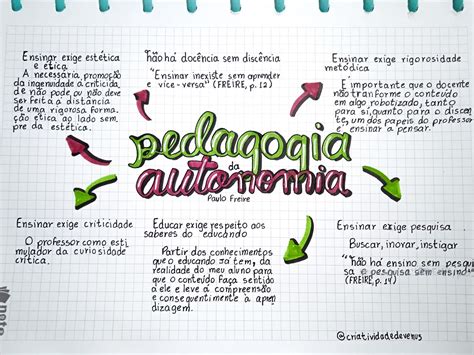 Ensinar exige estética
e ética
A necessária promoção
da ingenuidade à criticida
de não pode ou não deve
ser feita à distância
de uma rigorosa forma
ção ética ao lado sem
pre da estética.
Não há docência sem discência
"Ensinar inexiste sem aprender
e vice-versa" (FREIRE, p. 12)
Ensinar exige rigorosidade
metódica
É importante que o docente
não tranforme o conteúdo
em algo robotizado, tanto
para si, quanto para o discen
te, um dos papéis do professor
é ensinar a pensar.
pedagogia
da
autonomia
Paulo Freire
Ensinar exige criticidade
O professor como esti
mulador da curiosidade
crítica.
Educar exige respeito aos
saberes do "educando
Partir dos conhecimentos
que o educando já tem, da
realidade do meu aluno para
que o conteúdo faça sentido
a ele e leve à compreensão
e consequentimente à apren
dizagem.
Ensinar exige pesquisa
Buscar, inovar, instigar
"Não há ensino sem pesqui
sa e pesquisa sem ensino"
(FREIRE, p. 14)
note
@criatividadedevenus